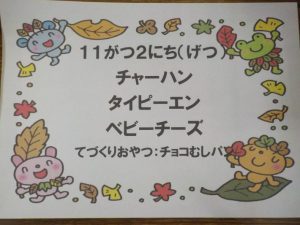 11がつ2にち(げつ)
チャーハン
タイピーエン
ベビーチーズ
てづくりおやつ:チョコむしパン